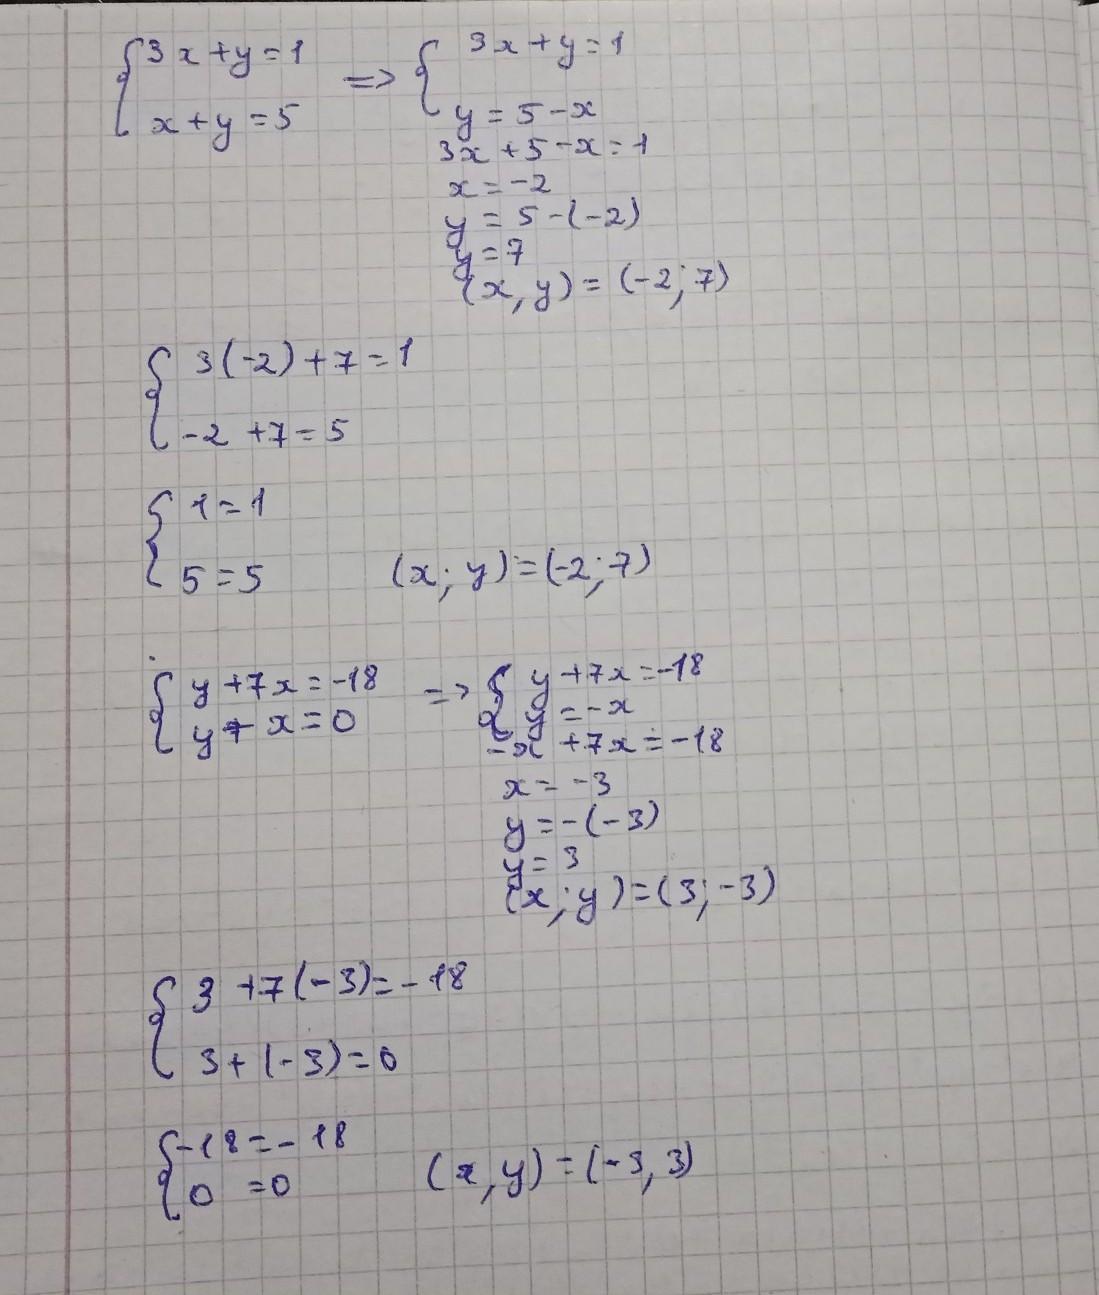 {3x+y=1 => {3x+y=1
x+y=5 y=5-x
3x+5-x=1
x=-2
y=5-(-2)
y=7
(x,y)=(-2;7)
{3(-2)+7=1
-2+7=5
{1=1
5=5 (x;y)=(-2;7)
{y+7x=-18 => {y+7x=-18
y+x=0 y=-x
-x+7x=-18
x=-3
y=-(-3)
y=3
(x;y)=(3;-3)
{3+7(-3)=-18
3+(-3)=0
{-18=-18
0=0 (x,y)=(-3,3)